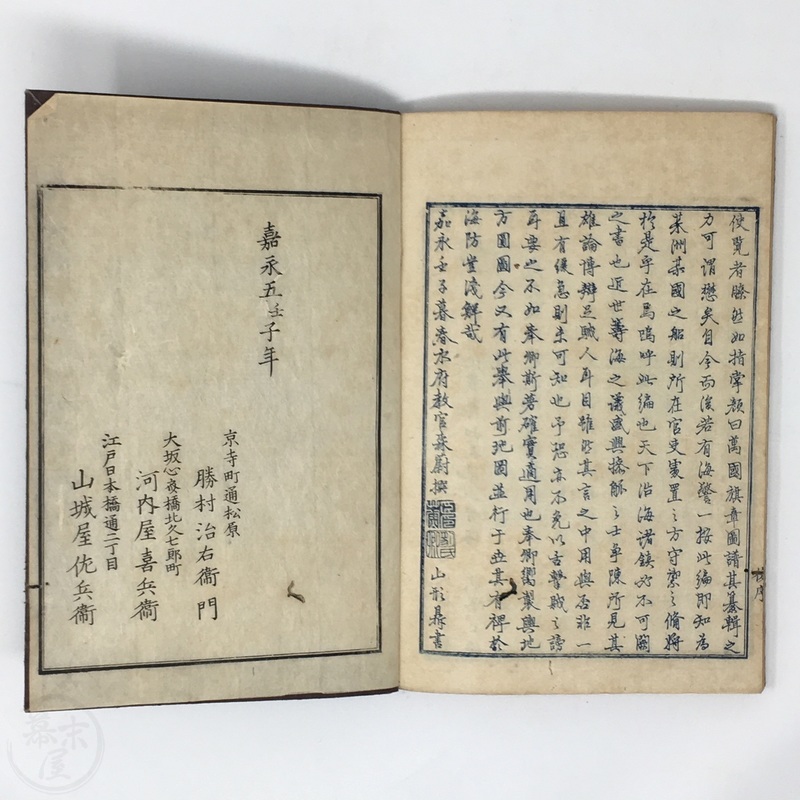 使覧者瞭然如指掌顔曰萬國旗章圖譜其纂輯之
力可謂懋矣自今而後若有海警一按此編即知為
某洲某國之船則所在官吏處置之方守禦之備將
於是乎在焉嗚呼此編也天下沿海諸鎮必不可闕
之書也近世籌海之議盛興操觚之士爭陳所見其
雄論博辯足聝人耳目雖然其言之中用與否非一
且有緩急則未可知也予恐亦不免以舌擊賊之謗
耳要之不如奉卿斯著確實適用也奉卿嚮製輿地
方圓圖今又有此舉與前地圖並行于世其有裨於
海防豈淺鮮哉
嘉永壬子暮春水府教官森蔚撰
山形鼎書
序
嘉永五壬子年
京寺町通松原
勝村治右衞門
大坂心斎橋北久七郎町
河内屋喜兵衞
江戸日本橋通二丁目
山城屋佐兵衞
幕末屋